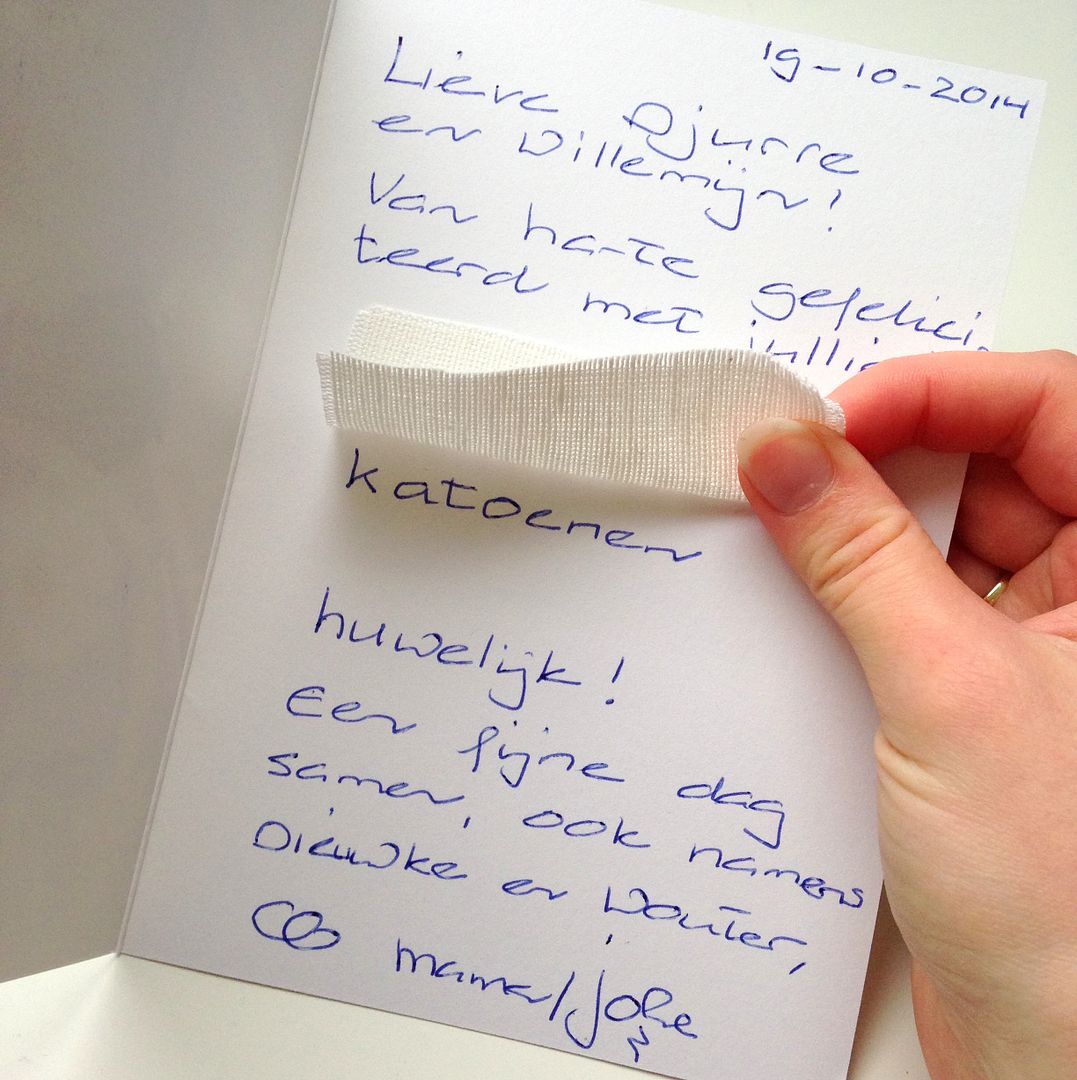 19-10-2014
Lieve Djurre
en Willemijn!
Van harte gefelici-
teerd met jullie
katoenen
huwelijk!
Een fijne dag
samen, ook namens
Dieuwke en Wouter,
mama/Joke